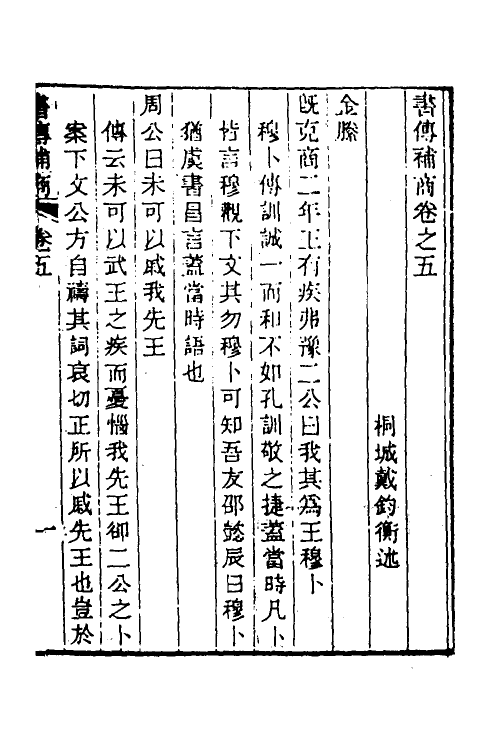 書傳補商卷之五
桐城戴鈞衡述
金縢
旣克商二年王有疾弗豫二公曰我其爲王穆卜
穆卜傳訓誠一而和不如孔訓敬之捷蓋當時凡卜
皆言穆觀下文其勿穆卜可知吾友邵懿辰曰穆卜
猶虞書昌言蓋當時語也
周公曰未可以戚我先王
傳云未可以武王之疾而憂惱我先王卻二公之卜
案下文公方自禱其詞哀切正所以戚先王也豈於
書傳補商 卷五
一